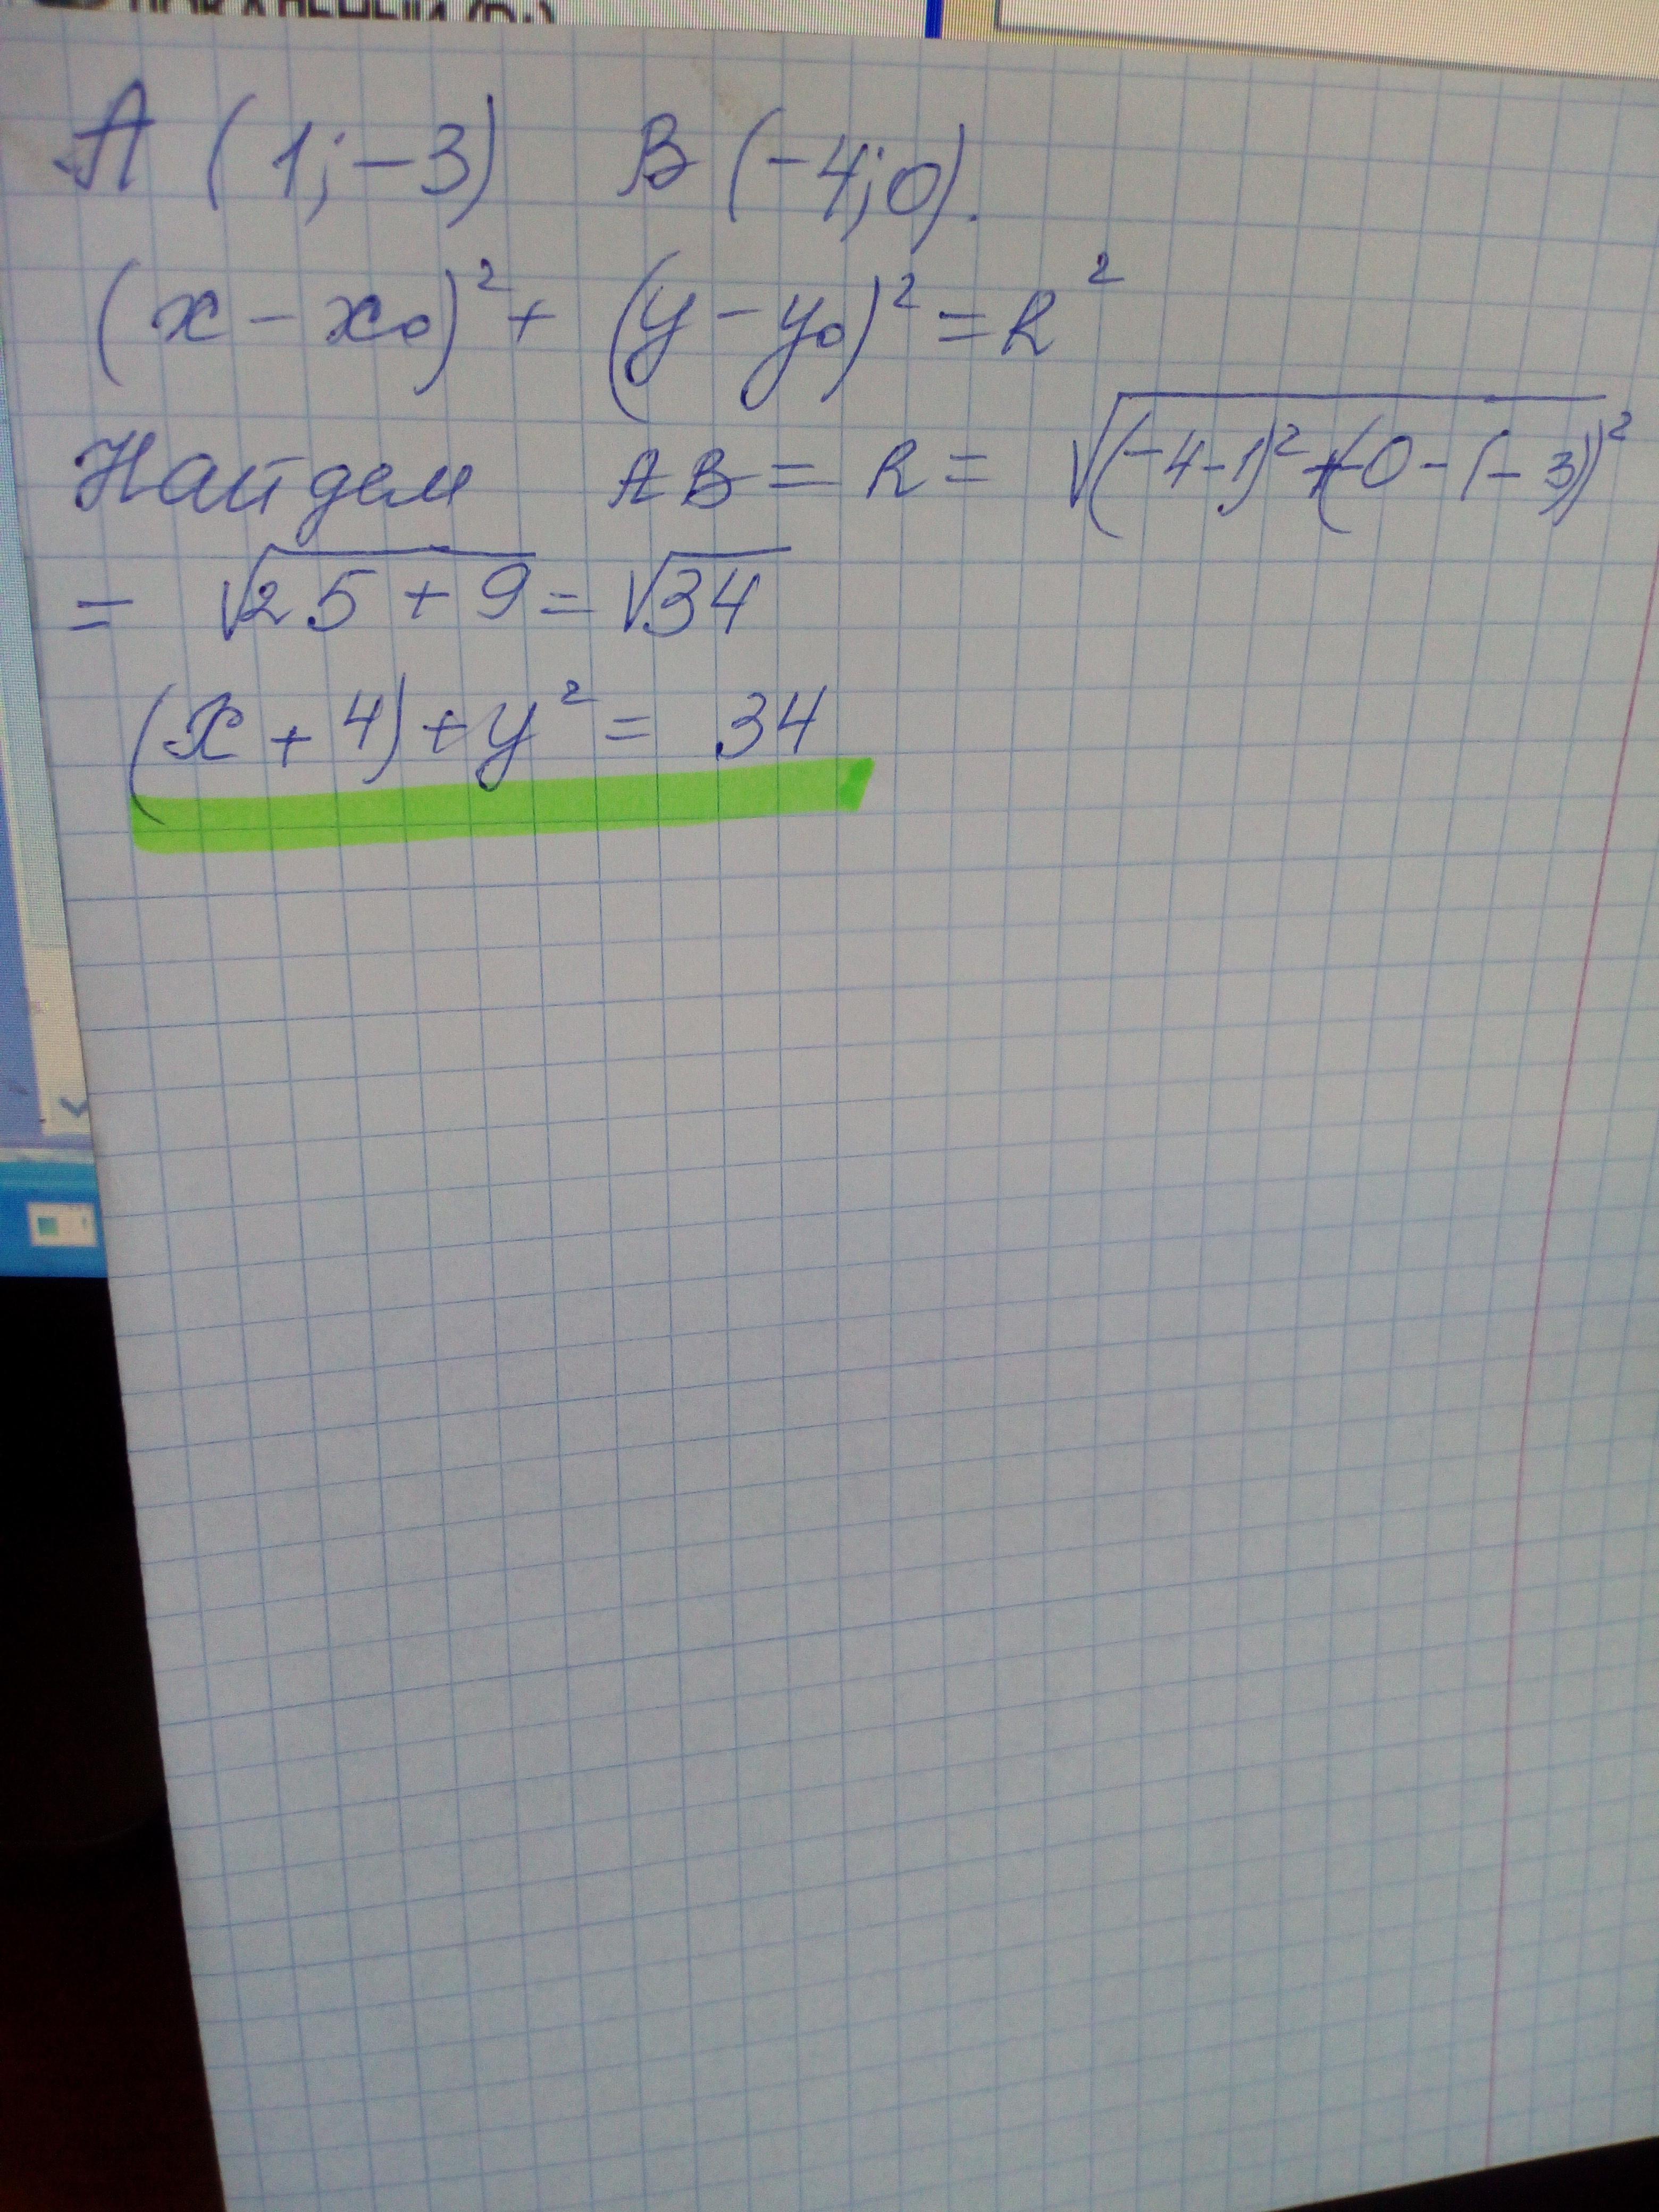 A (1; -3) B (-4; 0).
(x - x₀)² + (y - y₀)² = R²
Найдем AB = R = √(-4-1)² + (0 - (-3))²
= √25 + 9 = √34
(x + 4) + y² = 34